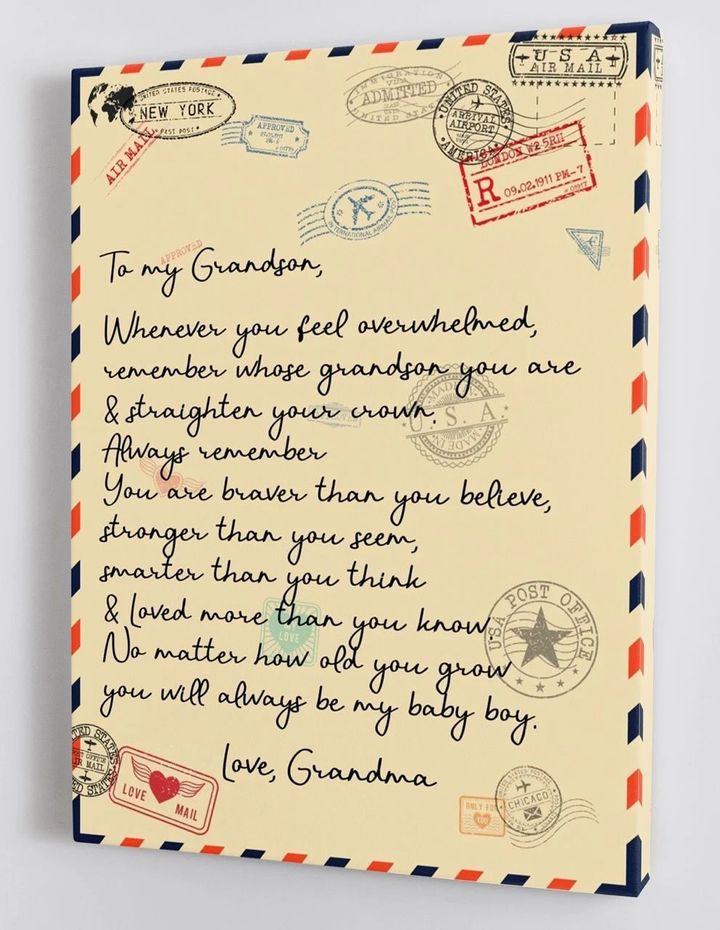 USA
AIR MAIL
UNITED STATES POSTAGE
NEW YORK
FAST POST
AIR MAIL
APPROVED
IMMIGRATION
ADMITTED
UNITED STATES
UNITED STATES
ARRIVAL
AIRPORT
AMERICA
LONDON W2 5RH
R 09.02.1911 PM-7
INTERNATIONAL AIRMAIL
APPROVED
To my Grandson,
Whenever you feel overwhelmed,
remember whose grandson you are
& straighten your crown.
MADE IN
U.S.A.
MADE IN
Always remember
You are braver than you believe,
stronger than you seem,
smarter than you think
& Loved more than you know
LOVE
No matter how old you grow
you will always be my baby boy.
USA POST OFFICE
Love, Grandma
UNITED STATES
POST OFFICE
AIR MAIL
UNITED STATES
LOVE MAIL
ONLY FOR
YOU
UNITED STATES POSTAGE
CHICAGO